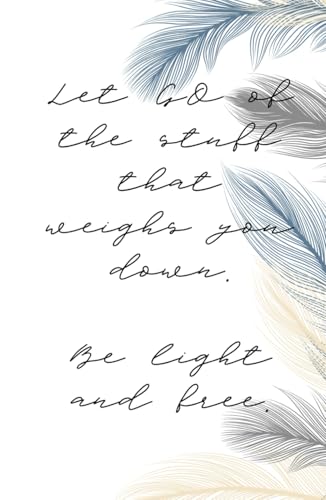 Let GO of
the stuff
that
weighs you
down.
Be light
and free.